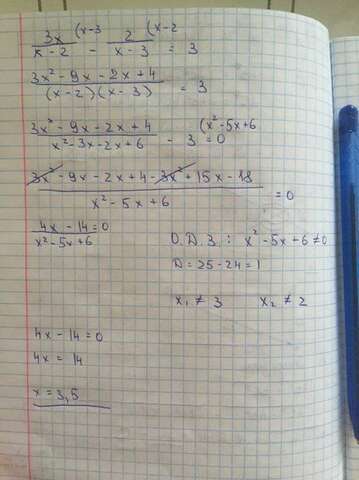 3x (x-3 / x-2 - 2 (x-2 / x-3 = 3
3x² - 9x - 2x + 4 / (x-2)(x-3) = 3
3x² - 9x - 2x + 4 / x² - 3x - 2x + 6 - 3 (x² - 5x + 6 = 0
3x² - 9x - 2x + 4 - 3x² + 15x - 18 / x² - 5x + 6 = 0
4x - 14 = 0 / x² - 5x + 6 О.D.З.: x² - 5x + 6 ≠ 0
D = 25 - 24 = 1
x₁ ≠ 3 x₂ ≠ 2
4x - 14 = 0
4x = 14
x = 3,5